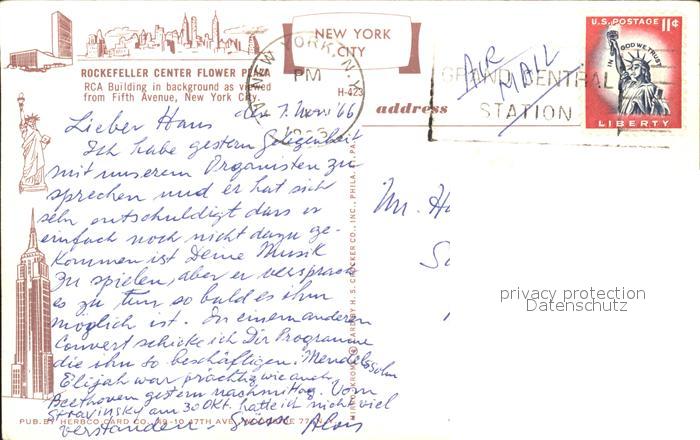 NEW YORK CITY
ROCKEFELLER CENTER FLOWER PLAZA
RCA Building in background as viewed
from Fifth Avenue, New York City.
H-423
address
NEW YORK, N.Y.
PM
GRAND CENTRAL
STATION
AIR
MAIL
U.S. POSTAGE 11¢
IN GOD WE TRUST
LIBERTY
Lieber Hans den 7. Nov. '66
Ich habe gestern Gelegenheit
mit unserem Organisten zu
sprechen und er hat sich
sehr entschuldigt dass er
einfach noch nicht dazu ge-
kommen ist Deine Musik
zu spielen, aber er versprach
es zu tun so bald es ihm
möglich ist. In einem anderen
Couvert schicke ich Dir Programme
die ihn so beschäftigen. Mendelssohn
Elijah war prächtig wie auch
Beethoven gestern nachmittag. Vom
Stravinsky am 30 Okt. hatte ich nicht viel
verstanden - Alois
Mr. H
privacy protection
Datenschutz
PUB. BY HERBCO CARD CO.
MIRRO-KROME CARD BY H. S. CROCKER CO., INC., PHILA., PA.